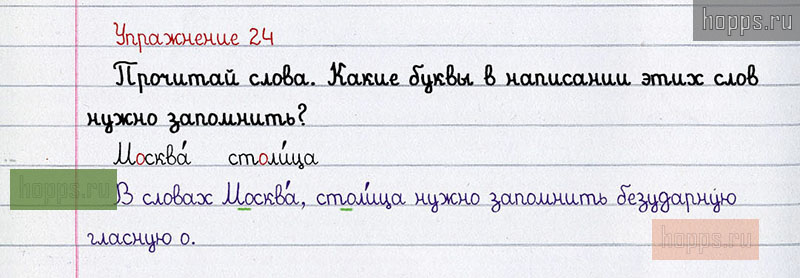 hopps.ru
Упражнение 24
Прочитай слова. Какие буквы в написании этих слов
нужно запомнить?
Москва́ столи́ца
hopps.ru
В словах Москва́, столи́ца нужно запомнить безударную
гласную о.
hopps.ru